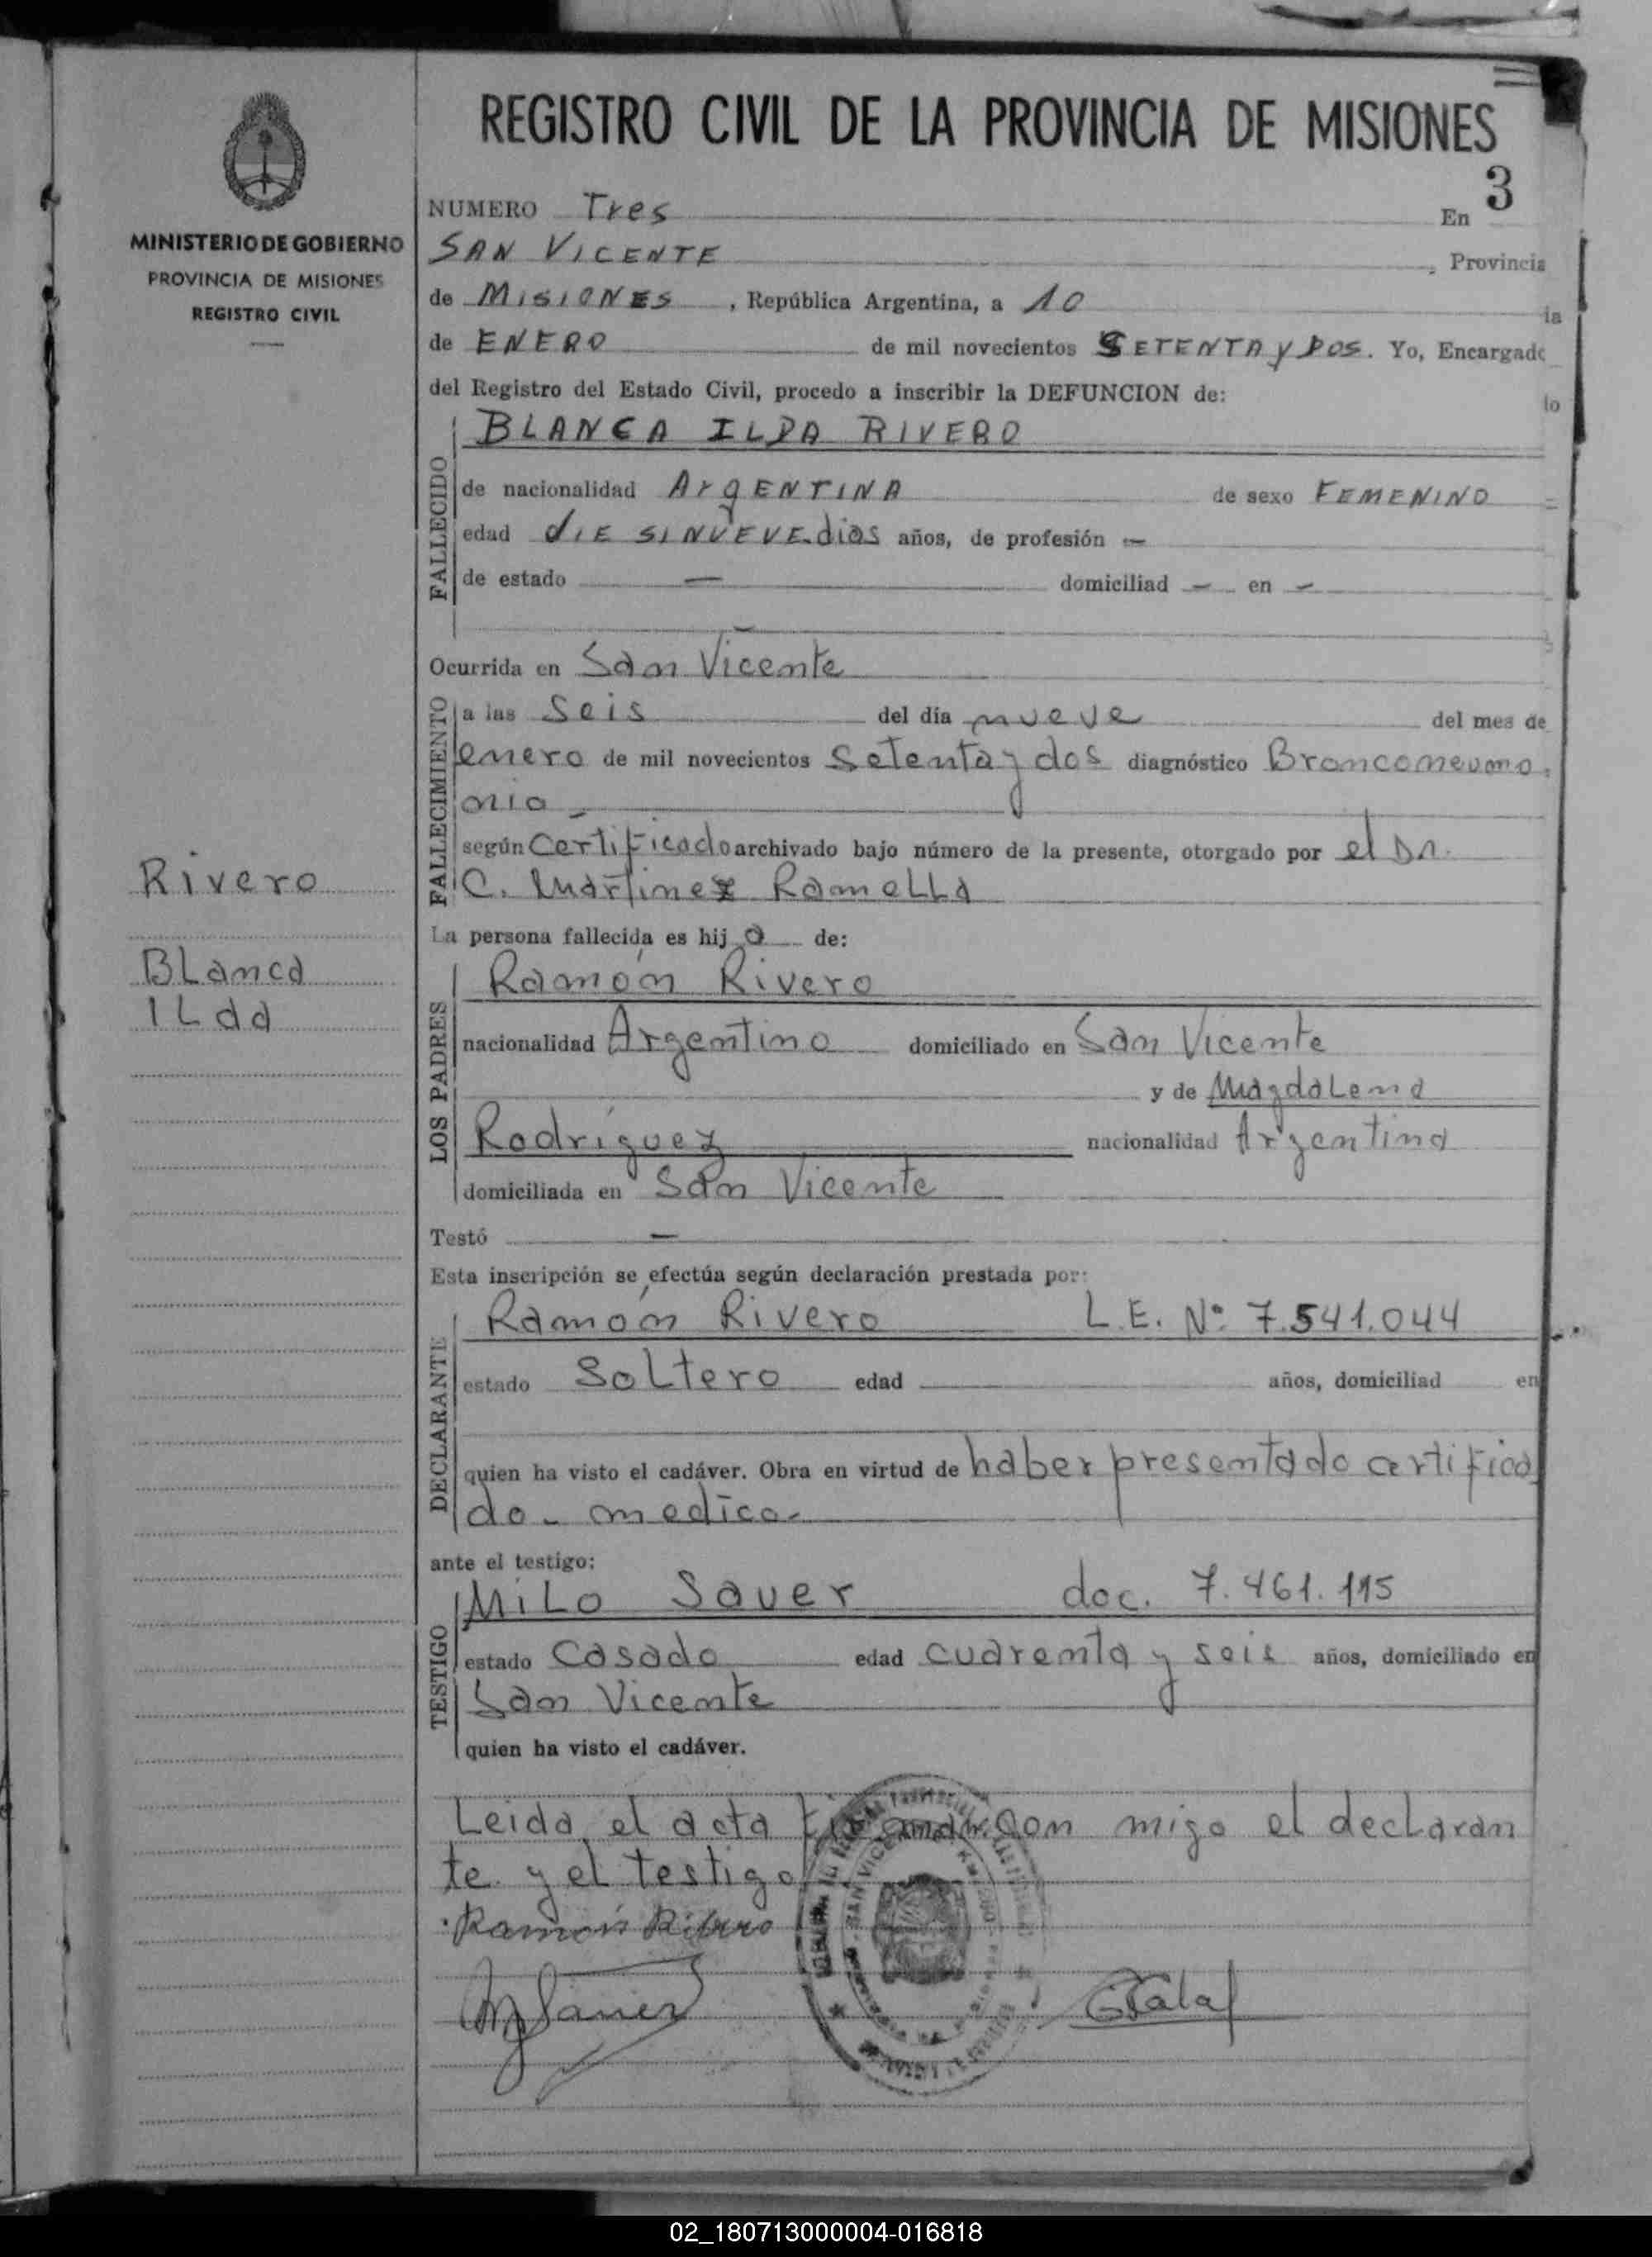 REGISTRO CIVIL DE LA PROVINCIA DE MISIONES
3
MINISTERIO DE GOBIERNO
PROVINCIA DE MISIONES
REGISTRO CIVIL
NUMERO Tres En
SAN VICENTE, Provincia
de MISIONES, República Argentina, a 10
de ENERO de mil novecientos SETENTA y DOS. Yo, Encargado
del Registro del Estado Civil, procedo a inscribir la DEFUNCION de:
FALLECIDO
BLANCA ILDA RIVERO
de nacionalidad ArgENTINA de sexo FEMENINO
edad diE SINUEVE. dias años, de profesión —
de estado — domiciliad — en —
Ocurrida en San Vicente
FALLECIMIENTO
a las Seis del día nueve del mes de
enero de mil novecientos setenta y dos diagnóstico Bronconeumo
nia
según Certificado archivado bajo número de la presente, otorgado por el Dr.
C. Martinez Ramella
La persona fallecida es hija de:
Rivero
Blanca
Ilda
LOS PADRES
Ramón Rivero
nacionalidad Argentino domiciliado en San Vicente
y de Magdalena
Rodríguez nacionalidad Argentina
domiciliada en San Vicente
Testó —
Esta inscripción se efectúa según declaración prestada por:
DECLARANTE
Ramón Rivero L.E. Nº 7.541.044
estado Soltero edad años, domiciliad en
quien ha visto el cadáver. Obra en virtud de haber presentado certifica
do - medico-
ante el testigo:
TESTIGO
Milo Sauer doc. 7.461.115
estado Casado edad cuarenta y seis años, domiciliado en
San Vicente
quien ha visto el cadáver.
Leida el acta firman con migo el declaran
te y el testigo
Ramón Ribero
02_180713000004-016818